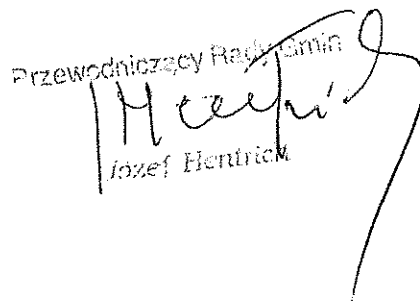 Przewodniczący Rady Gmin
Józef Hentrich